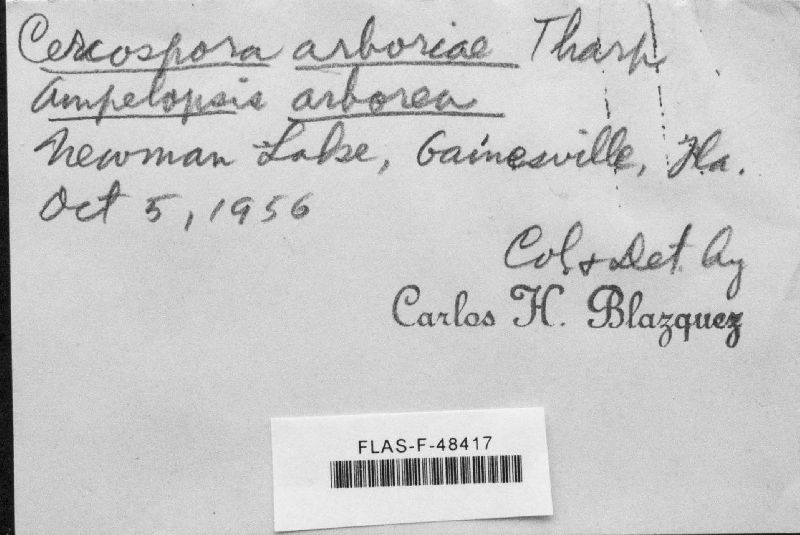 Cercospora arboriae Tharp
Ampelopsis arborea
Newman Lake, Gainesville, Fla.
Oct 5, 1956
Col. & Det. by
Carlos H. Blazquez
FLAS-F-48417